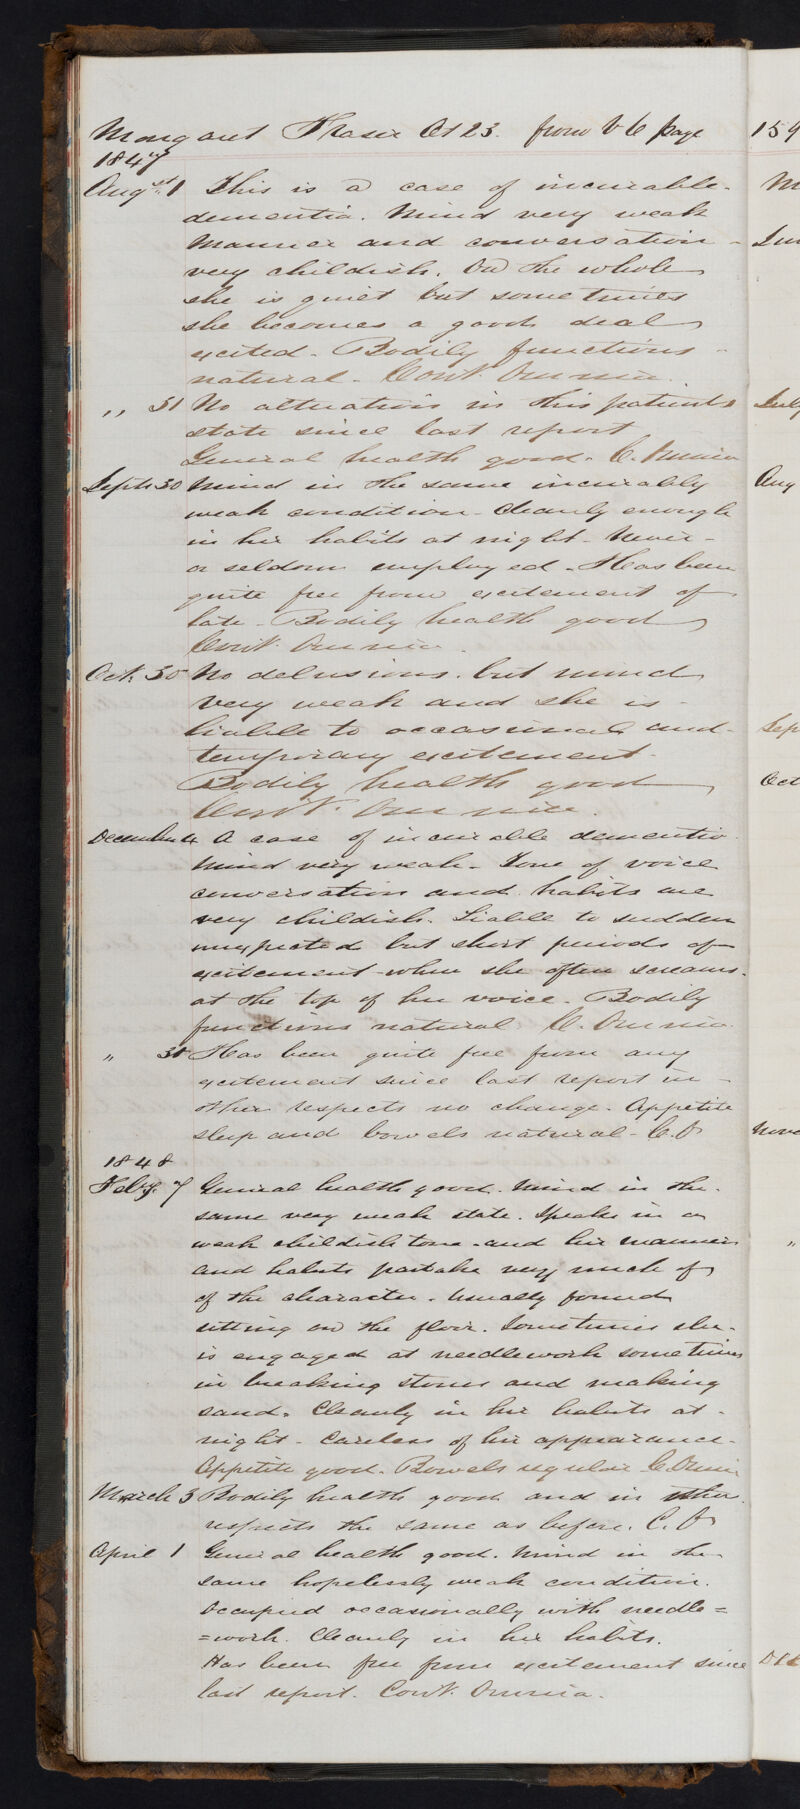 Margaret Fraser Æt 23. from V 6 page
1847
Augst 1 This is a case of incurable
dementia. Mind very weak
Manner and conversation
very childish. On the whole
she is quiet but sometimes
she becomes a good deal
excited. Bodily functions
natural. Cont. Omnia.
,, 31 No alteration in this patients
state since last report
General health good. C. Omnia
Septr 30 Mind in the same incurably
weak condition. Cleanly enough
in her habits at night. Never
or seldom employed. Has been
quite free from excitement of
late. Bodily health good
Cont. Omnia.
Oct. 30 No delusions. but mind
very weak and she is
liable to occasional and
temporary excitement.
Bodily health good
Cont. Omnia.
December 4 A case of incurable dementia
Mind very weak. Tone of voice
conversation and habits are
very childish. Liable to sudden
unexpected but short periods of
excitement when she often screams
at the top of her voice. Bodily
functions natural C. Omnia.
" Has been quite free from any
excitement since last report in
other respects no change. Appetite
sleep and bowels natural - C. O
1848
Feby. 7 General health good. Mind in the
same very weak state. Speaks in a
weak childish tone and her manners
and habits partake very much of
of the character. Usually found
sitting on the floor. Sometimes she
is engaged at needlework sometimes
in breaking stones and making
sand. Cleanly in her habits at
night. Careless of her appearance.
Appetite good. Bowels regular C. Omnia
March 3 Bodily health good and in other
respects the same as before. C. O
April 1 General health good. Mind in the
same hopelessly weak condition.
Occupied occasionally with needle=
=work. Cleanly in her habits.
Has been free from excitement since
last report. Cont. Omnia.
159
M
Jun
July
Aug
Sep
Oct
Nove
"